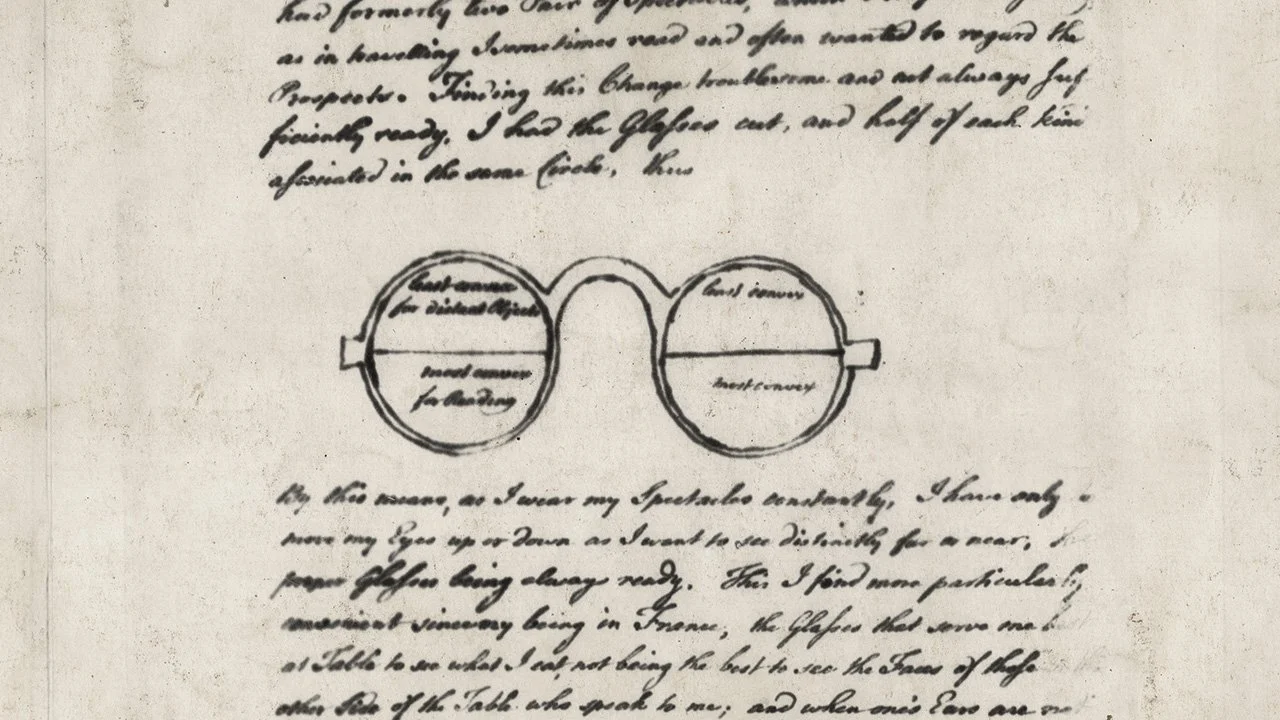 had formerly two Pair of Spectacles,
as in travelling I sometimes read and often wanted to regard the
Prospects. Finding this Change troublesome and not always suf
ficiently ready, I had the Glasses cut, and half of each kind
associated in the same Circle, thus
least convex
for distant Objects
most convex
for Reading
least convex
most convex
By this means, as I wear my Spectacles constantly, I have only
move my Eyes up or down as I want to see distinctly far or near,
proper Glasses being always ready. This I find more particularly
convenient since my being in France, the Glasses that serve me
at Table to see what I eat, not being the best to see the Faces of those
other Side of the Table who speak to me; and when one's Ears are not